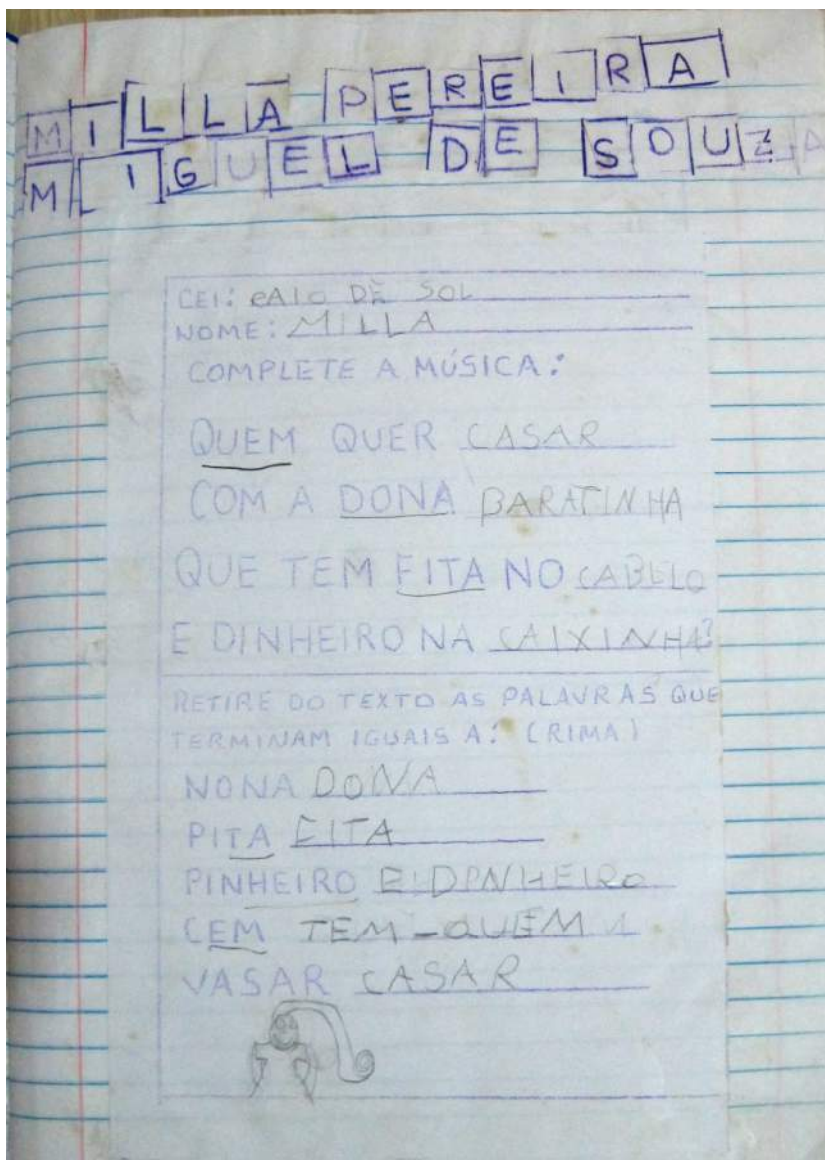 MILLA PEREIRA
MIGUEL DE SOUZA
CEI: RAIO DE SOL
NOME: MILLA
COMPLETE A MÚSICA:
QUEM QUER CASAR
COM A DONA BARATINHA
QUE TEM FITA NO CABELO
E DINHEIRO NA CAIXINHA?
RETIRE DO TEXTO AS PALAVRAS QUE
TERMINAM IGUAIS A: (RIMA)
NONA DONA
PITA FITA
PINHEIRO
CEM TEM-QUEM
VASAR CASAR